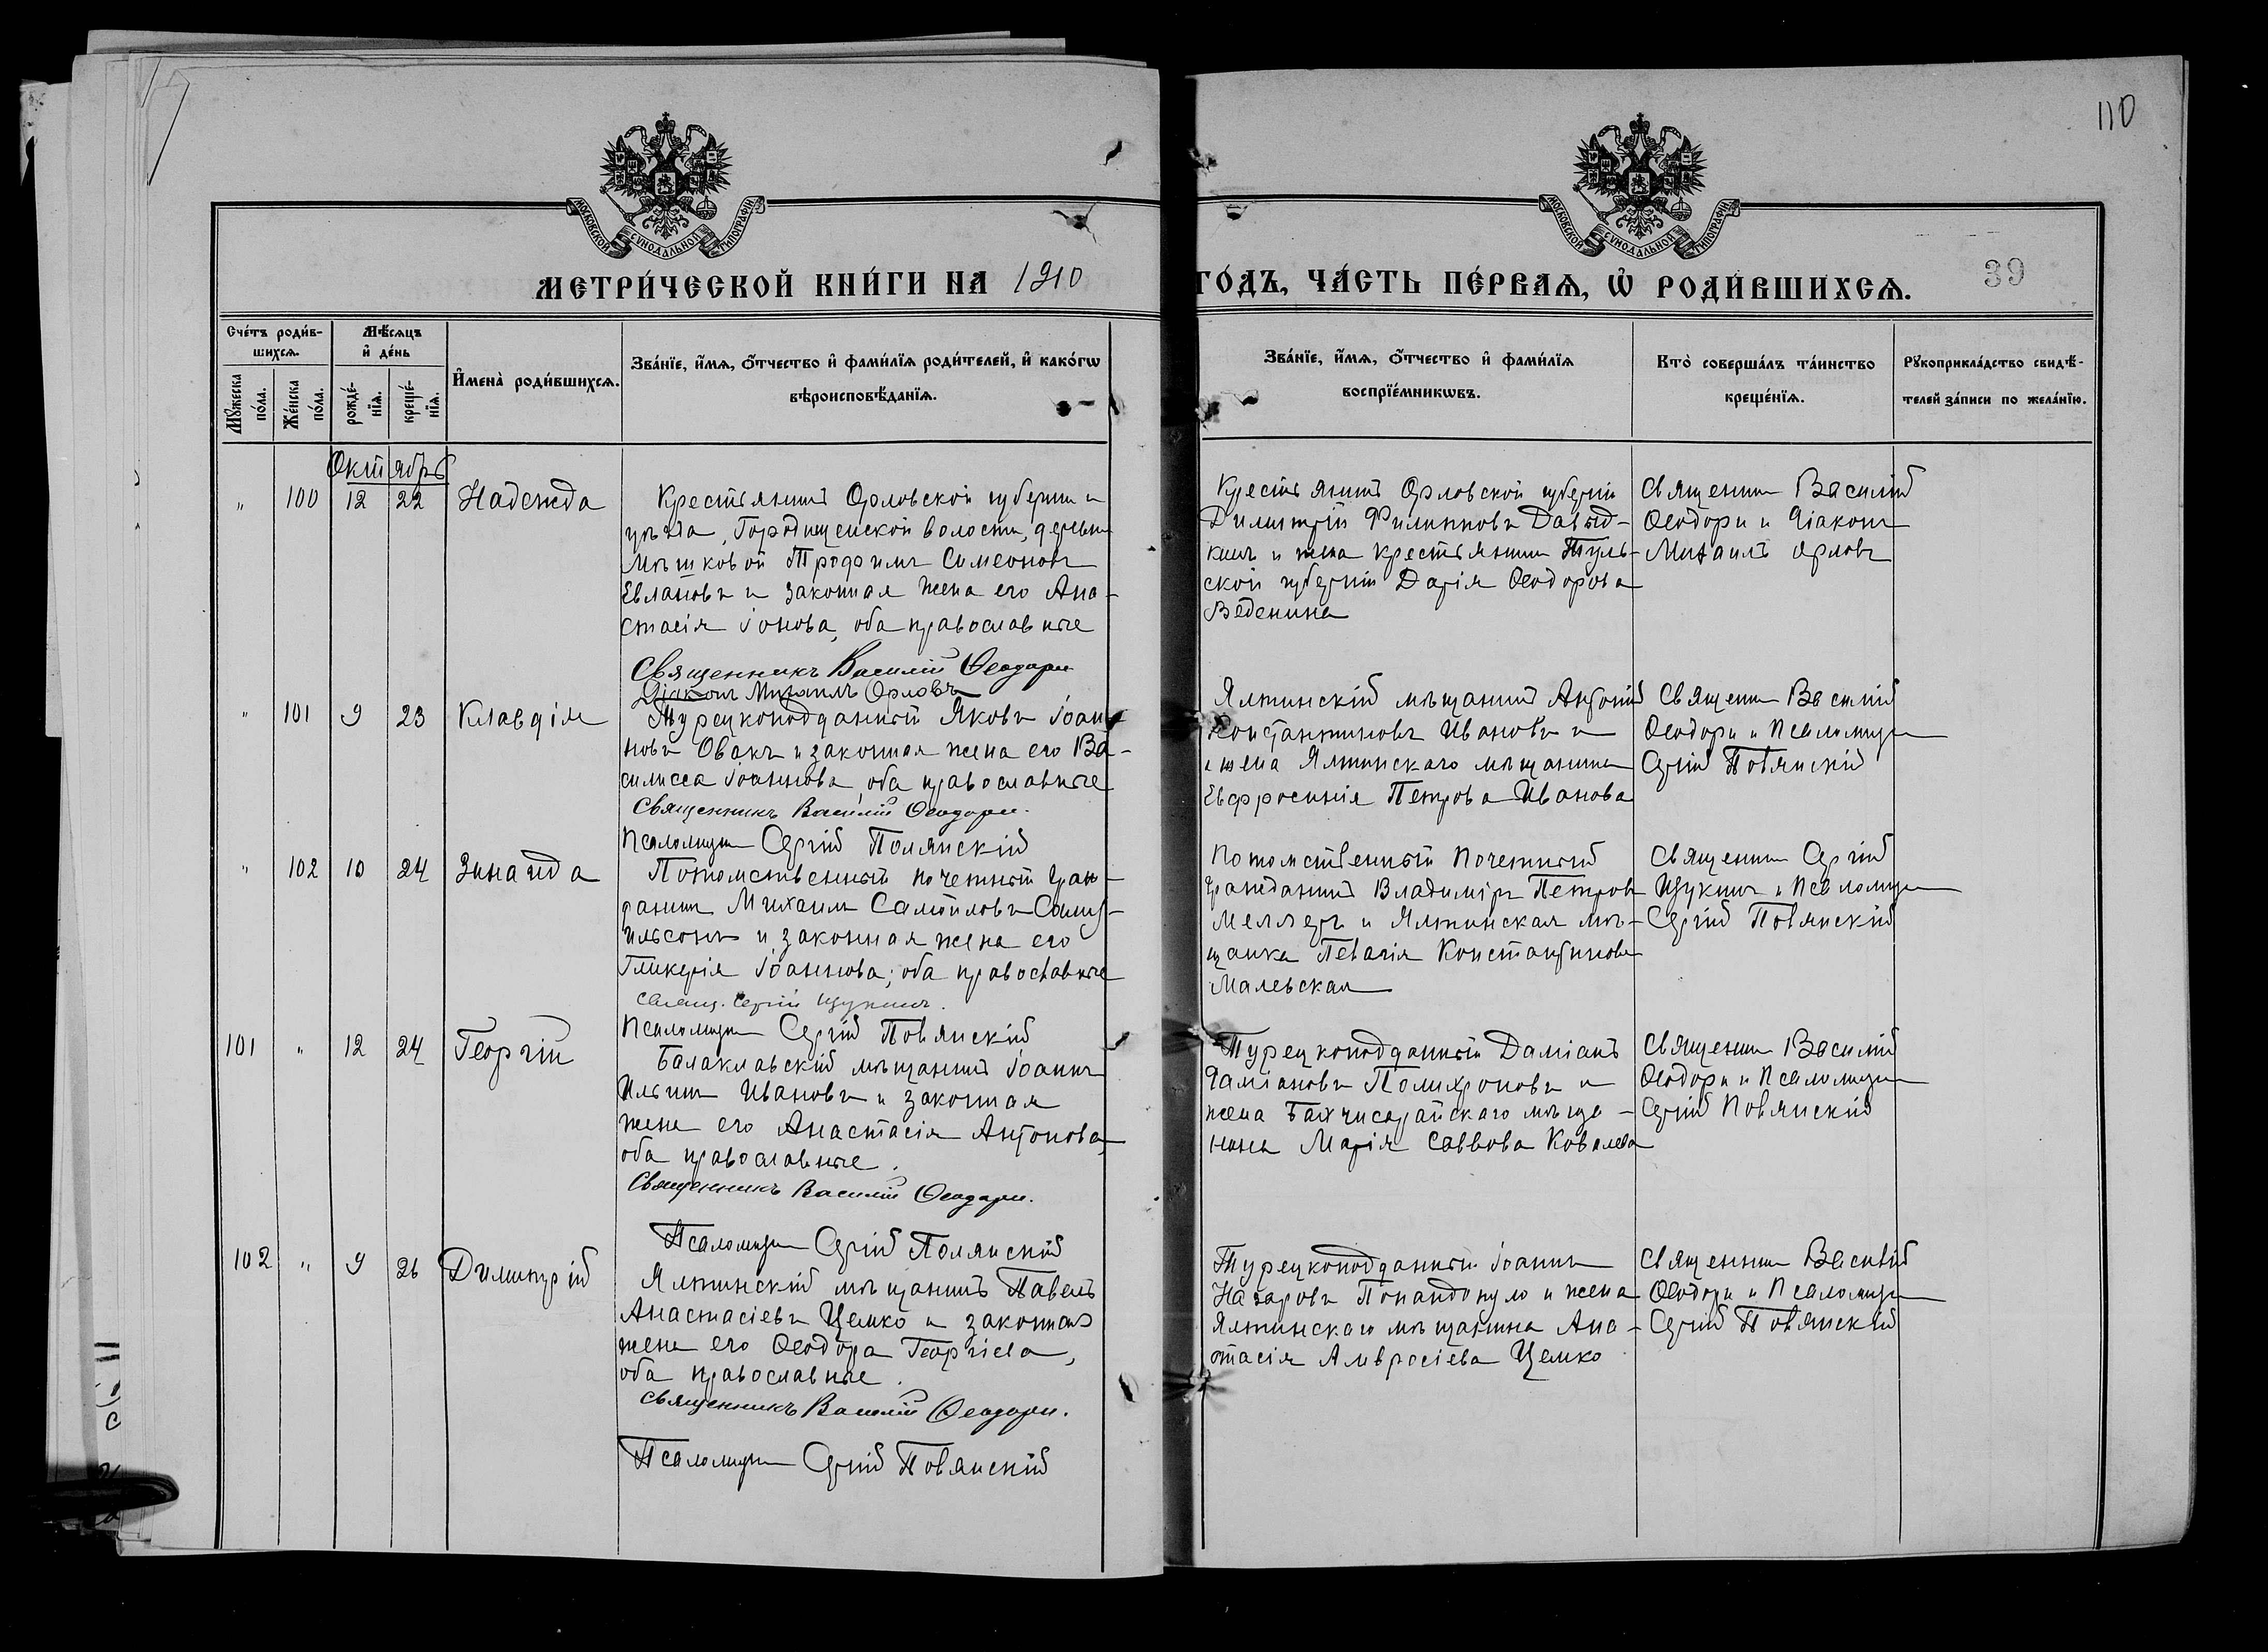 110
МОСКОВСКОЙ СѴНОДАЛЬНОЙ ТИПОГРАФІИ
МОСКОВСКОЙ СѴНОДАЛЬНОЙ ТИПОГРАФІИ
МЕТРИ́ЧЕСКОЙ КНИ́ГИ НА 1910
ГО́ДЪ, ЧА́СТЬ ПЕ́РВАѦ, Ѽ РОДИ́ВШИХСѦ.
39
Сче́тъ роди́в-
шихсѧ.
Мꙋ́жеска по́ла.
Же́нска по́ла.
Мѣ́сѧцъ
и҆ де́нь
рожде́-
нїѧ.
креще́-
нїѧ.
И҆мена̀ роди́вшихсѧ.
Зва́нїе, и҆́мѧ, ѻ҆́тчество и҆ фами́лїѧ роди́телей, и҆ како́гѡ
вѣроисповѣ́данїѧ.
Зва́нїе, и҆́мѧ, ѻ҆́тчество и҆ фами́лїѧ
воспрїе́мникѡвъ.
Кто̀ соверша́лъ та́инство
креще́нїѧ.
Рꙋкоприкла́дство свидѣ́-
телей за́писи по жела́нїю.
Октябрь
" 100 12 22 Надежда
Крестьянинъ Орловской губерніи и
уѣзда, Городищенской волости, деревни
Мѣшковой Трофимъ Симеоновъ
Евлановъ и законная жена его Ана-
стасія Іонова, оба православные
Священникъ Василій Ѳеодори
Діаконъ Михаилъ Орловъ
Крестьянинъ Орловской губерніи
Димитрій Филипповъ Давыд-
кинъ и жена крестьянина Туль-
ской губерніи Дарія Ѳеодорова
Веденина
Священникъ Василій
Ѳеодори и Діаконъ
Михаилъ Орловъ
" 101 9 23 Клавдія
Турецкоподданный Яковъ Іоан-
новъ Овакъ и законная жена его Ва-
силисса Іоаннова, оба православные
Священникъ Василій Ѳеодори.
Псаломщикъ Сергій Полянскій
Ялтинскій мѣщанинъ Антоній
Константиновъ Ивановъ и
жена Ялтинскаго мѣщанина
Евфросинія Петрова Иванова
Священникъ Василій
Ѳеодори и Псаломщикъ
Сергій Полянскій
" 102 10 24 Зинаида
Потомственный почетный граж-
данинъ Михаилъ Самойловъ Саму-
ильсонъ и законная жена его
Гликерія Іоаннова; оба православные
Свящ. Сергій Щукинъ.
Псаломщикъ Сергій Полянскій
Потомственный Почетный
гражданинъ Владиміръ Петровъ
Меллеръ и Ялтинская мѣ-
щанка Пелагія Константинова
Малевская
Священникъ Сергій
Щукинъ и Псаломщикъ
Сергій Полянскій
101 " 12 24 Георгій
Балаклавскій мѣщанинъ Іоаннъ
Ильинъ Ивановъ и законная
жена его Анастасія Антонова,
оба православные.
Священникъ Василій Ѳеодори.
Псаломщикъ Сергій Полянскій
Турецкоподданный Даміанъ
Даміановъ Полихроновъ и
жена Бахчисарайскаго мѣща-
нина Марія Саввова Ковалева
Священникъ Василій
Ѳеодори и Псаломщикъ
Сергій Полянскій
102 " 9 26 Димитрій
Ялтинскій мѣщанинъ Павелъ
Анастасіевъ Цемко и законная
жена его Ѳеодора Георгіева,
оба православные.
Священникъ Василій Ѳеодори.
Псаломщикъ Сергій Полянскій
Турецкоподданный Іоаннъ
Назаровъ Попандопуло и жена
Ялтинскаго мѣщанина Ана-
стасія Амвросіева Цемко
Священникъ Василій
Ѳеодори и Псаломщикъ
Сергій Полянскій